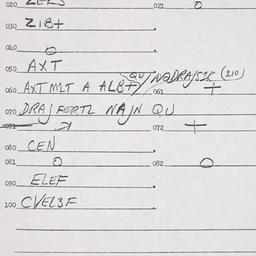 020 ZEES 021 0
030 ZIB+
040 0
050 AXT
060 AXTMLT A ALB+/ QU/NQDRAJSIK (210) 061 +
070 DRAJ FERTL NAJN QU
071 072 +
080 CEN
081 0 082 0
090 ELEF
100 CVEL3F